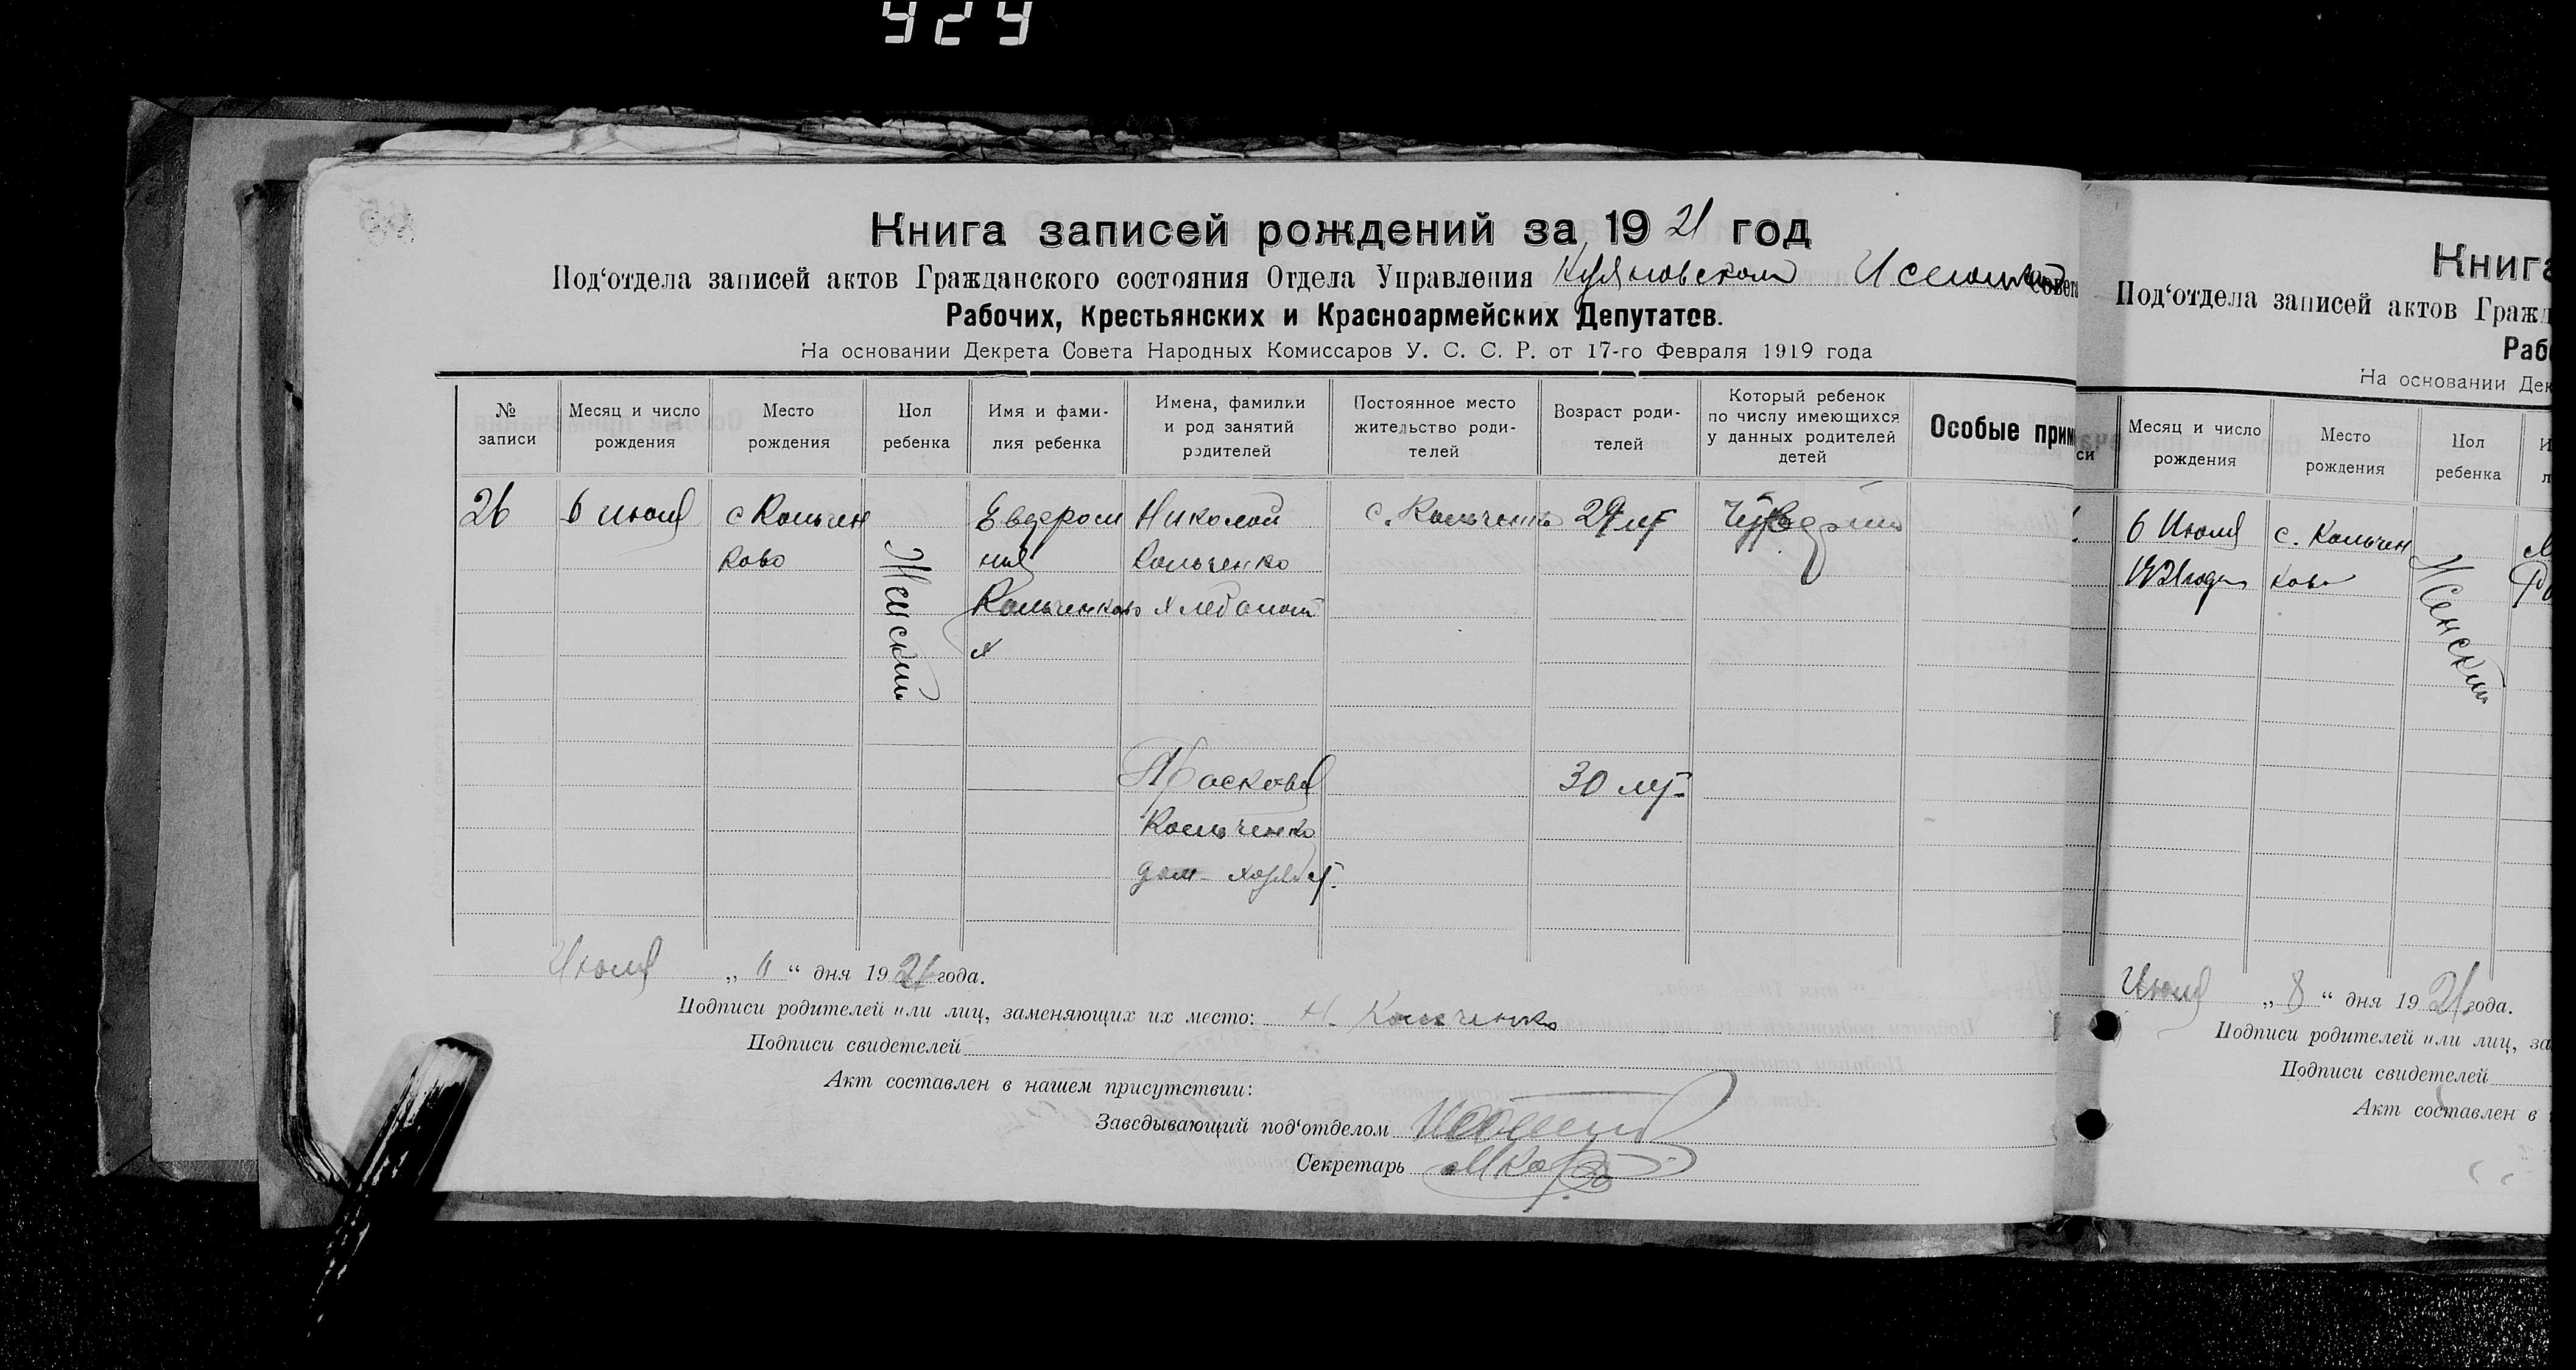 929
Книга записей рождений за 1921 год
Под‘отдела записей актов Гражданского состояния Отдела Управления
Рабочих, Крестьянских и Красноармейских Депутатов.
На основании Декрета Совета Народных Комиссаров У. С. С. Р. от 17-го Февраля 1919 года
№ записи
Месяц и число рождения
Место рождения
Пол ребенка
Имя и фами-
лия ребенка
Имена, фамилии
и род занятий
родителей
Постоянное место
жительство роди-
телей
Возраст роди-
телей
Который ребенок
по числу имеющихся
у данных родителей
детей
Особые прим
26
6 июля
с Кольчен
ково
Женский
Николай
Кольченко
с.
29 лет
Кольченко
30 лет
Июля „ 6 “ дня 1921 года.
Подписи родителей или лиц, заменяющих их место: Н. Кольченко
Подписи свидетелей
Акт составлен в нашем присутствии:
Заведывающий под‘отделом
Секретарь
Книга
Под‘отдела записей актов Гражд
Раб
На основании Дек
си
Месяц и число
рождения
Место
рождения
Пол
ребенка
6 Июля
1921 года
с. Кольчен
ково
Женский
Июля „ 8 “ дня 1921 года.
Подписи родителей или лиц, за
Подписи свидетелей
Акт составлен в